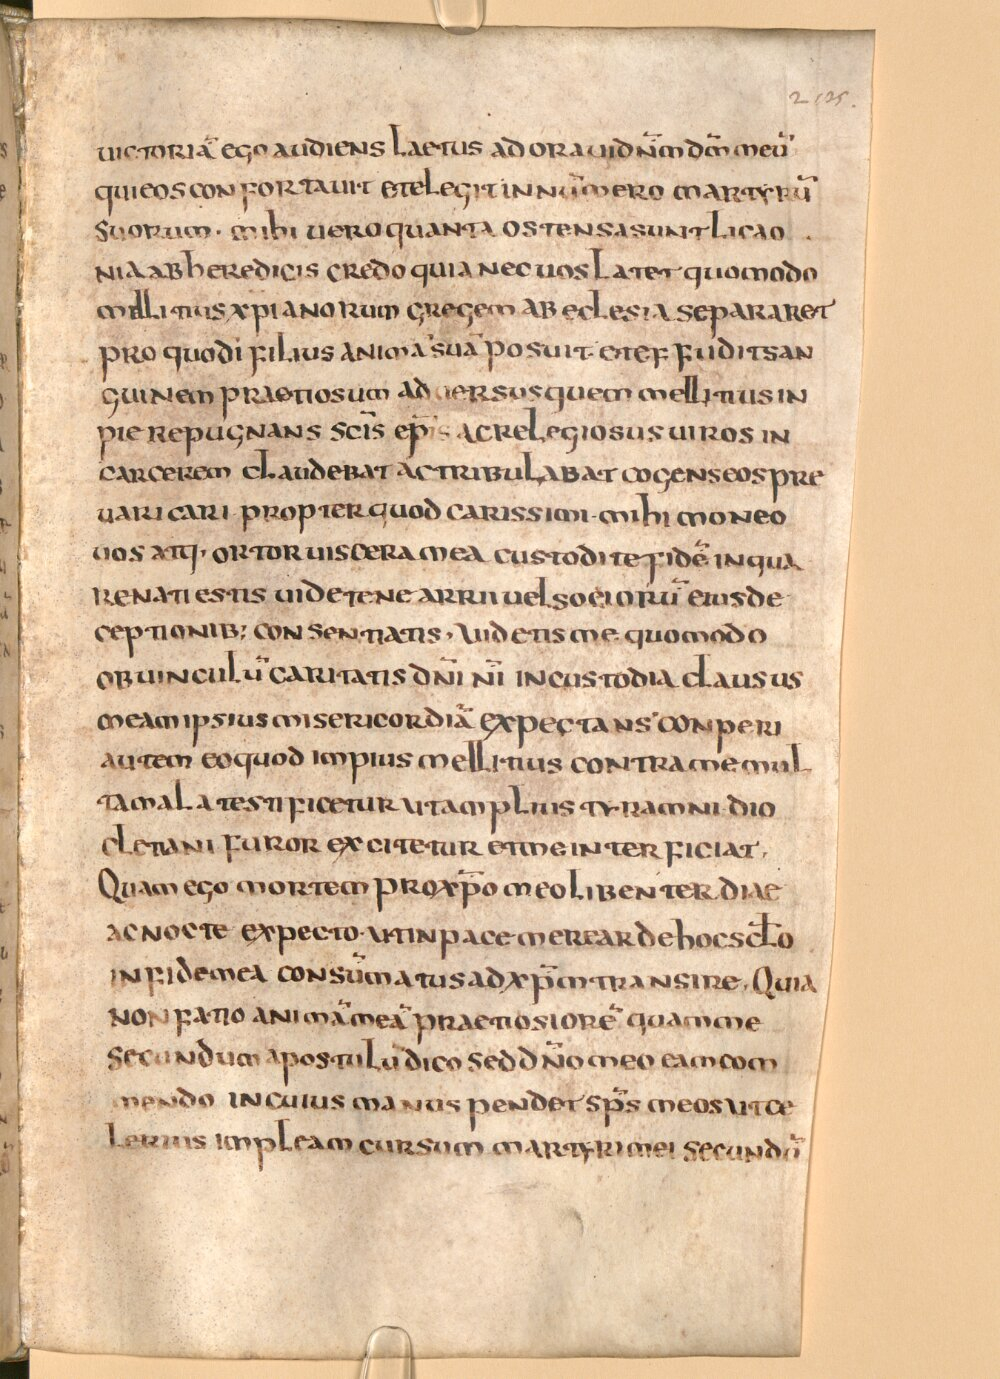 2 125.
uictoriā ego audiens laetus adorauid nm̄ dm̄ meū
qui eos confortauit et elegit in nūmero martyrū
suorum· mihi uero quanta ostensa sunt licao
nia ab heredicis credo quia nec uos latet quomodo
mellitius xpianorum gregem ab eclesia separaret
pro quo di filius animā suā posuit et effudit san
guinem praetiosum aduersus quem mellitius in
pie repugnans scīs ep̄is ac relegiosus uiros in
carcerem claudebat ac tribulabat cogens eos pre
uaricari propter quod carissimi mihi moneo
uos atq; ortor uiscera mea custodite fidē in qua
renati estis uidete ne arrii uel sociorū eius de
ceptionib; consentiatis, uidetis me quomodo
ob uinculū caritatis dn̄i nī in custodia clausus
meam ipsius misericordiā expectans conperi
autem eo quod impius mellitius contra me mul
ta mala testificetur ut amplius tyramni dio
cletiani furor excitetur et me interficiat,
Quam ego mortem pro xp̄o meo libenter diae
ac nocte expecto ut in pace merear de hoc scl̄o
in fide mea consūmatus ad xp̄m transire, Quia
non fatio animā meā praetiosiorē quam me
secundum apostulū dico sed dn̄o meo eam com
mendo in cuius manus pendet sp̄s meos ut ce
lerius impleam cursum martyri mei secundū